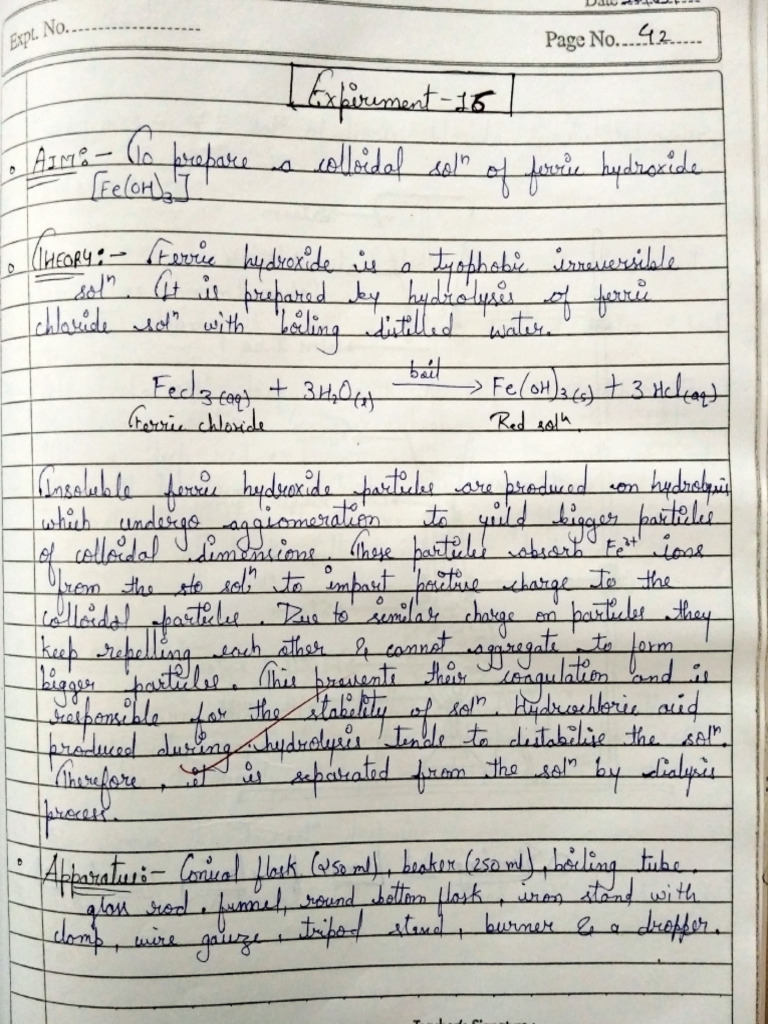 Expt. No.
Page No. 42
Experiment - 15
AIM:- To prepare a colloidal solⁿ of ferric hydroxide
[Fe(OH)₃]
THEORY:- Ferric hydroxide is a lyophobic irreversible
solⁿ. It is prepared by hydrolysis of ferric
chloride solⁿ with boiling distilled water.
boil
Fecl₃(aq) + 3H₂O(l) → Fe(OH)₃(s) + 3Hcl(aq)
Ferric chloride Red solⁿ.
Insoluble ferric hydroxide particles are produced on hydrolysis
which undergo agglomeration to yeild bigger particles
of colloidal dimensions. These particles absorb Fe³⁺ ions
from the sto solⁿ to impart positive charge to the
colloidal particles. Due to similar charge on particles they
keep repelling each other & cannot aggregate to form
bigger particles. This prevents their coagulation and is
responsible for the stability of solⁿ. Hydrochloric acid
produced during hydrolysis tends to distabilise the solⁿ.
Therefore, it is separated from the solⁿ by dialysis
process.
Apparatus:- Conical flask (250 ml), beaker (250 ml), boiling tube.
glass rod. funnel, round bottom flask, iron stand with
clamp, wire gauze, tripod stand, burner & a dropper.